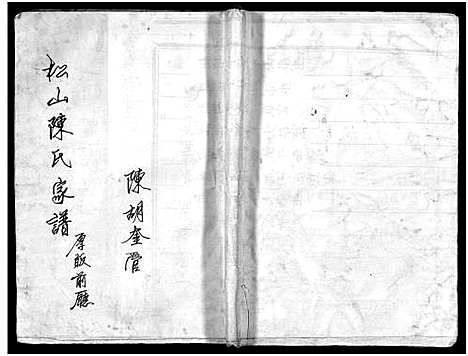 松山陳氏家譜
原版前廳
陳胡奎管